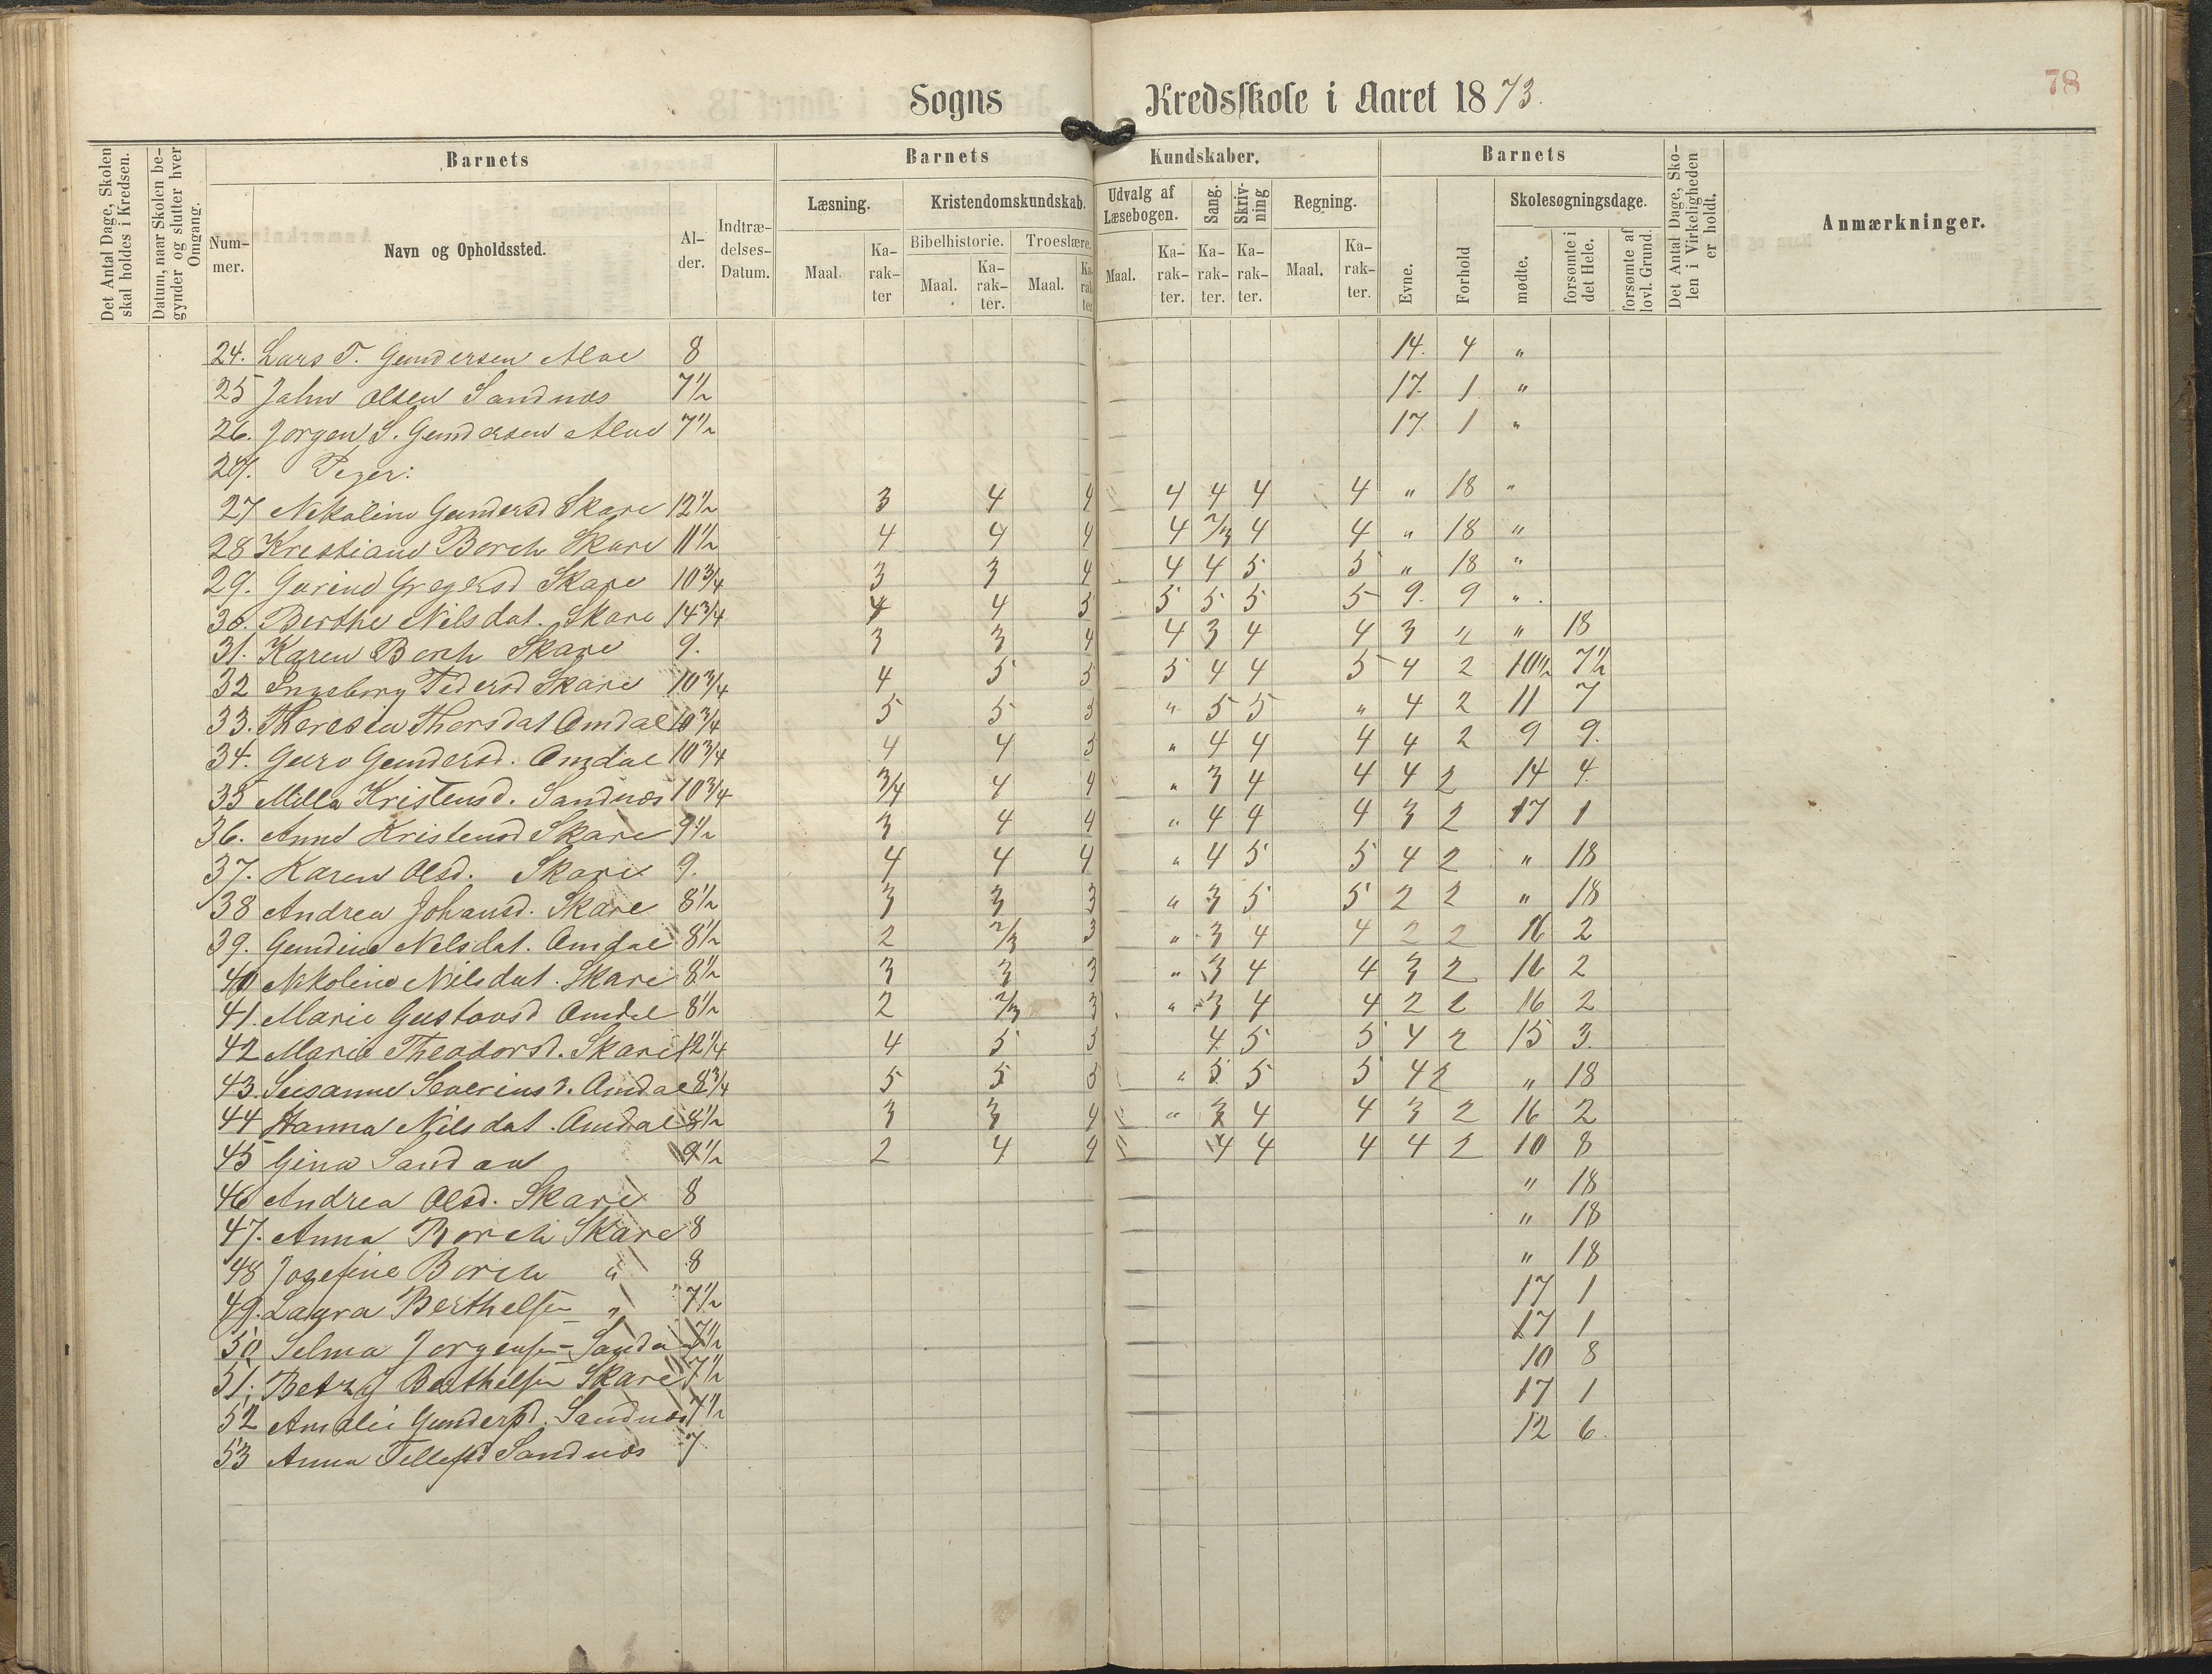 78
Sogns Kredsskole i Aaret 1873.
Det Antal Dage, Skolen skal holdes i Kredsen.
Datum, naar Skolen begynder og slutter hver Omgang.
Barnets
Nummer.
Navn og Opholdssted.
Alder.
Indtrædelses-Datum.
Barnets Kundskaber.
Læsning.
Maal.
Karakter
Kristendomskundskab.
Bibelhistorie.
Maal.
Karakter.
Troeslære.
Maal.
Karakter
Udvalg af Læsebogen.
Maal.
Karakter.
Sang.
Karakter.
Skrivning
Karakter.
Regning.
Maal.
Karakter.
Barnets
Evne.
Forhold
Skolesøgningsdage.
mødte.
forsømte i det Hele.
forsømte af lovl. Grund.
Det Antal Dage, Skolen i Virkeligheden er holdt.
Anmærkninger.
24. Lars T. Gundersen Alve 8 14. 4 "
25 Jahn Olsen Sandnæs 7½ 17. 1 "
26. Jørgen S. Gundersen Alve 7½ 17 1 "
Piger:
27 Nikoline Gundersd Skare 12½ 3 4 4 4 4 4 4 " 18 "
28 Kristiane Borch Skare 11½ 4 4 4 4 2/3 4 4 " 18 "
29. Gurine Gregersd Skare 10¾ 3 3 4 4 4 5 5 " 18 "
30. Berthe Nilsdat. Skare 14¾ 4 4 5 5 5 5 5 9. 9 "
31. Karen Borch Skare 9. 3 3 4 4 3 4 4 3 " " 18
32 Ingeborg Pedersd Skare 10¾ 4 5 5 5 4 4 5 4 2 10½ 7½
33. Theresia Thorsdat Omdal 10¾ 5 5 5 " 5 5 " 4 2 11 7
34. Guro Gundersd. Omdal 10¾ 4 4 5 " 4 4 4 4 2 9 9.
35 Milla Kristensd. Sandnæs 10¾ 3/4 4 4 " 3 4 4 4 2 14 4.
36. Anne Kristensd Skare 9½ 3 4 4 " 4 4 4 3 2 17 1
37. Karen Olsd. Skare 9. 4 4 4 " 4 5 5 4 2 " 18
38 Andrea Johansd. Skare 8½ 3 3 3 " 3 5 5 2 2 " 18
39. Gundine Nilsdat. Omdal 8½ 2 2/3 3 " 3 4 4 2 2 16 2
40 Nikoline Nilsdat. Skare 8½ 3 3 3 " 3 4 4 3 2 16 2
41. Marie Gustavsd Omdal 8½ 2 2/3 3 " 3 4 4 2 2 16 2
42 Marie Theodorsd. Skare 12¼ 4 5 5 4 5 5 4 2 15 3.
43. Susanne Severinsd. Omdal 8¾ 5 5 5 " 5 5 5 4 2 " 18
44 Hanna Nilsdat. Omdal 8½ 3 3 4 " 3 4 4 3 2 16 2
45 Gina Sandaa 9½ 2 4 4 4 4 4 4 2 10 8
46 Andrea Olsd. Skare 8 " 18
47. Anna Borch Skare 8 " 18
48 Josefine Borch " 8 " 18
49. Laura Berthelsen " 7½ 17 1
50 Selma Jørgensen Sandaa 7½ 17 1
51. Betzy Berthelsen Skare 7½ 10 8
52 Amalie Gundersd. Sandnæs 7½ 17 1
53 Anna Tellefsd Sandnæs 7 12 6.